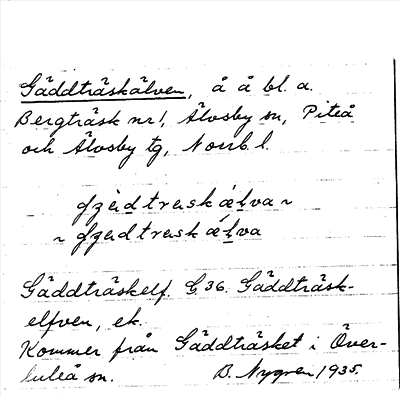 Gäddträskälven, å å bl. a.
Bergträsk nr 1, Älvsby sn, Piteå
och Älvsby tg, Norrb. l.
Gäddträskelf. G. 36. Gäddträsk-
elfven, ek.
Kommer från Gäddträsket i Över-
luleå sn. B. Nygren 1935.